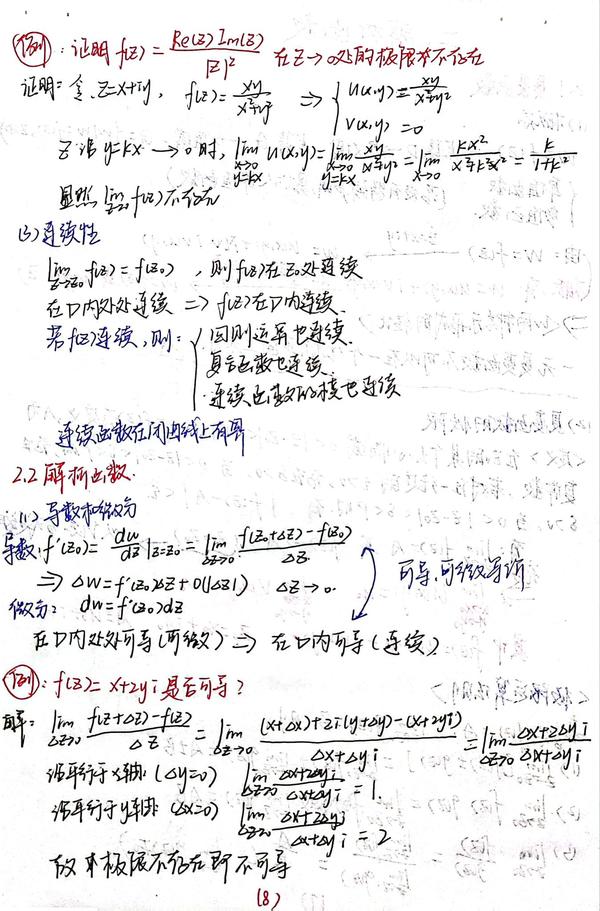 例: 证明 f(z) = Re(z) Im(z) / |z|² 在 z→0处的极限不存在
证明: 令 z=x+iy, f(z)= xy/(x²+y²) ⇒ { u(x,y)= xy/(x²+y²)
v(x,y) = 0
z沿 y=kx → 0时, lim_{x→0, y=kx} u(x,y) = lim_{x→0, y=kx} xy/(x²+y²) = lim_{x→0} kx²/(x²+k²x²) = k/(1+k²)
显然 lim_{z→0} f(z) 不存在
(3) 连续性
lim_{z→z₀} f(z) = f(z₀) , 则 f(z)在 z₀处连续
在D内处处连续 ⇒ f(z)在D内连续.
若f(z)连续, 则: { 四则运算也连续.
复合函数也连续.
连续函数的模也连续
连续函数在闭曲线上有界
2.2 解析函数.
(1) 导数和微分
导数: f'(z₀) = dw/dz |z=z₀ = lim_{Δz→0} f(z₀+Δz) − f(z₀) / Δz
⇒ Δw = f'(z₀)Δz + O(|Δz|) Δz → 0.
可导、可微等价
微分: dw = f'(z₀)dz
在D内处处可导(可微) ⇒ 在D内可导(连续)
例: f(z) = x+2yi 是否可导?
解: lim_{Δz→0} f(z+Δz) − f(z) / Δz = lim_{Δz→0} (x+Δx)+2i(y+Δy)−(x+2yi) / Δx+Δyi = lim_{Δz→0} Δx+2Δyi / Δx+Δyi
沿平行于x轴 (Δy=0) lim_{Δz→0} Δx+2Δyi / Δx+Δyi = 1.
沿平行于y轴 (Δx=0) lim_{Δz→0} Δx+2Δyi / Δx+Δyi = 2
故 极限不存在即不可导
(8)